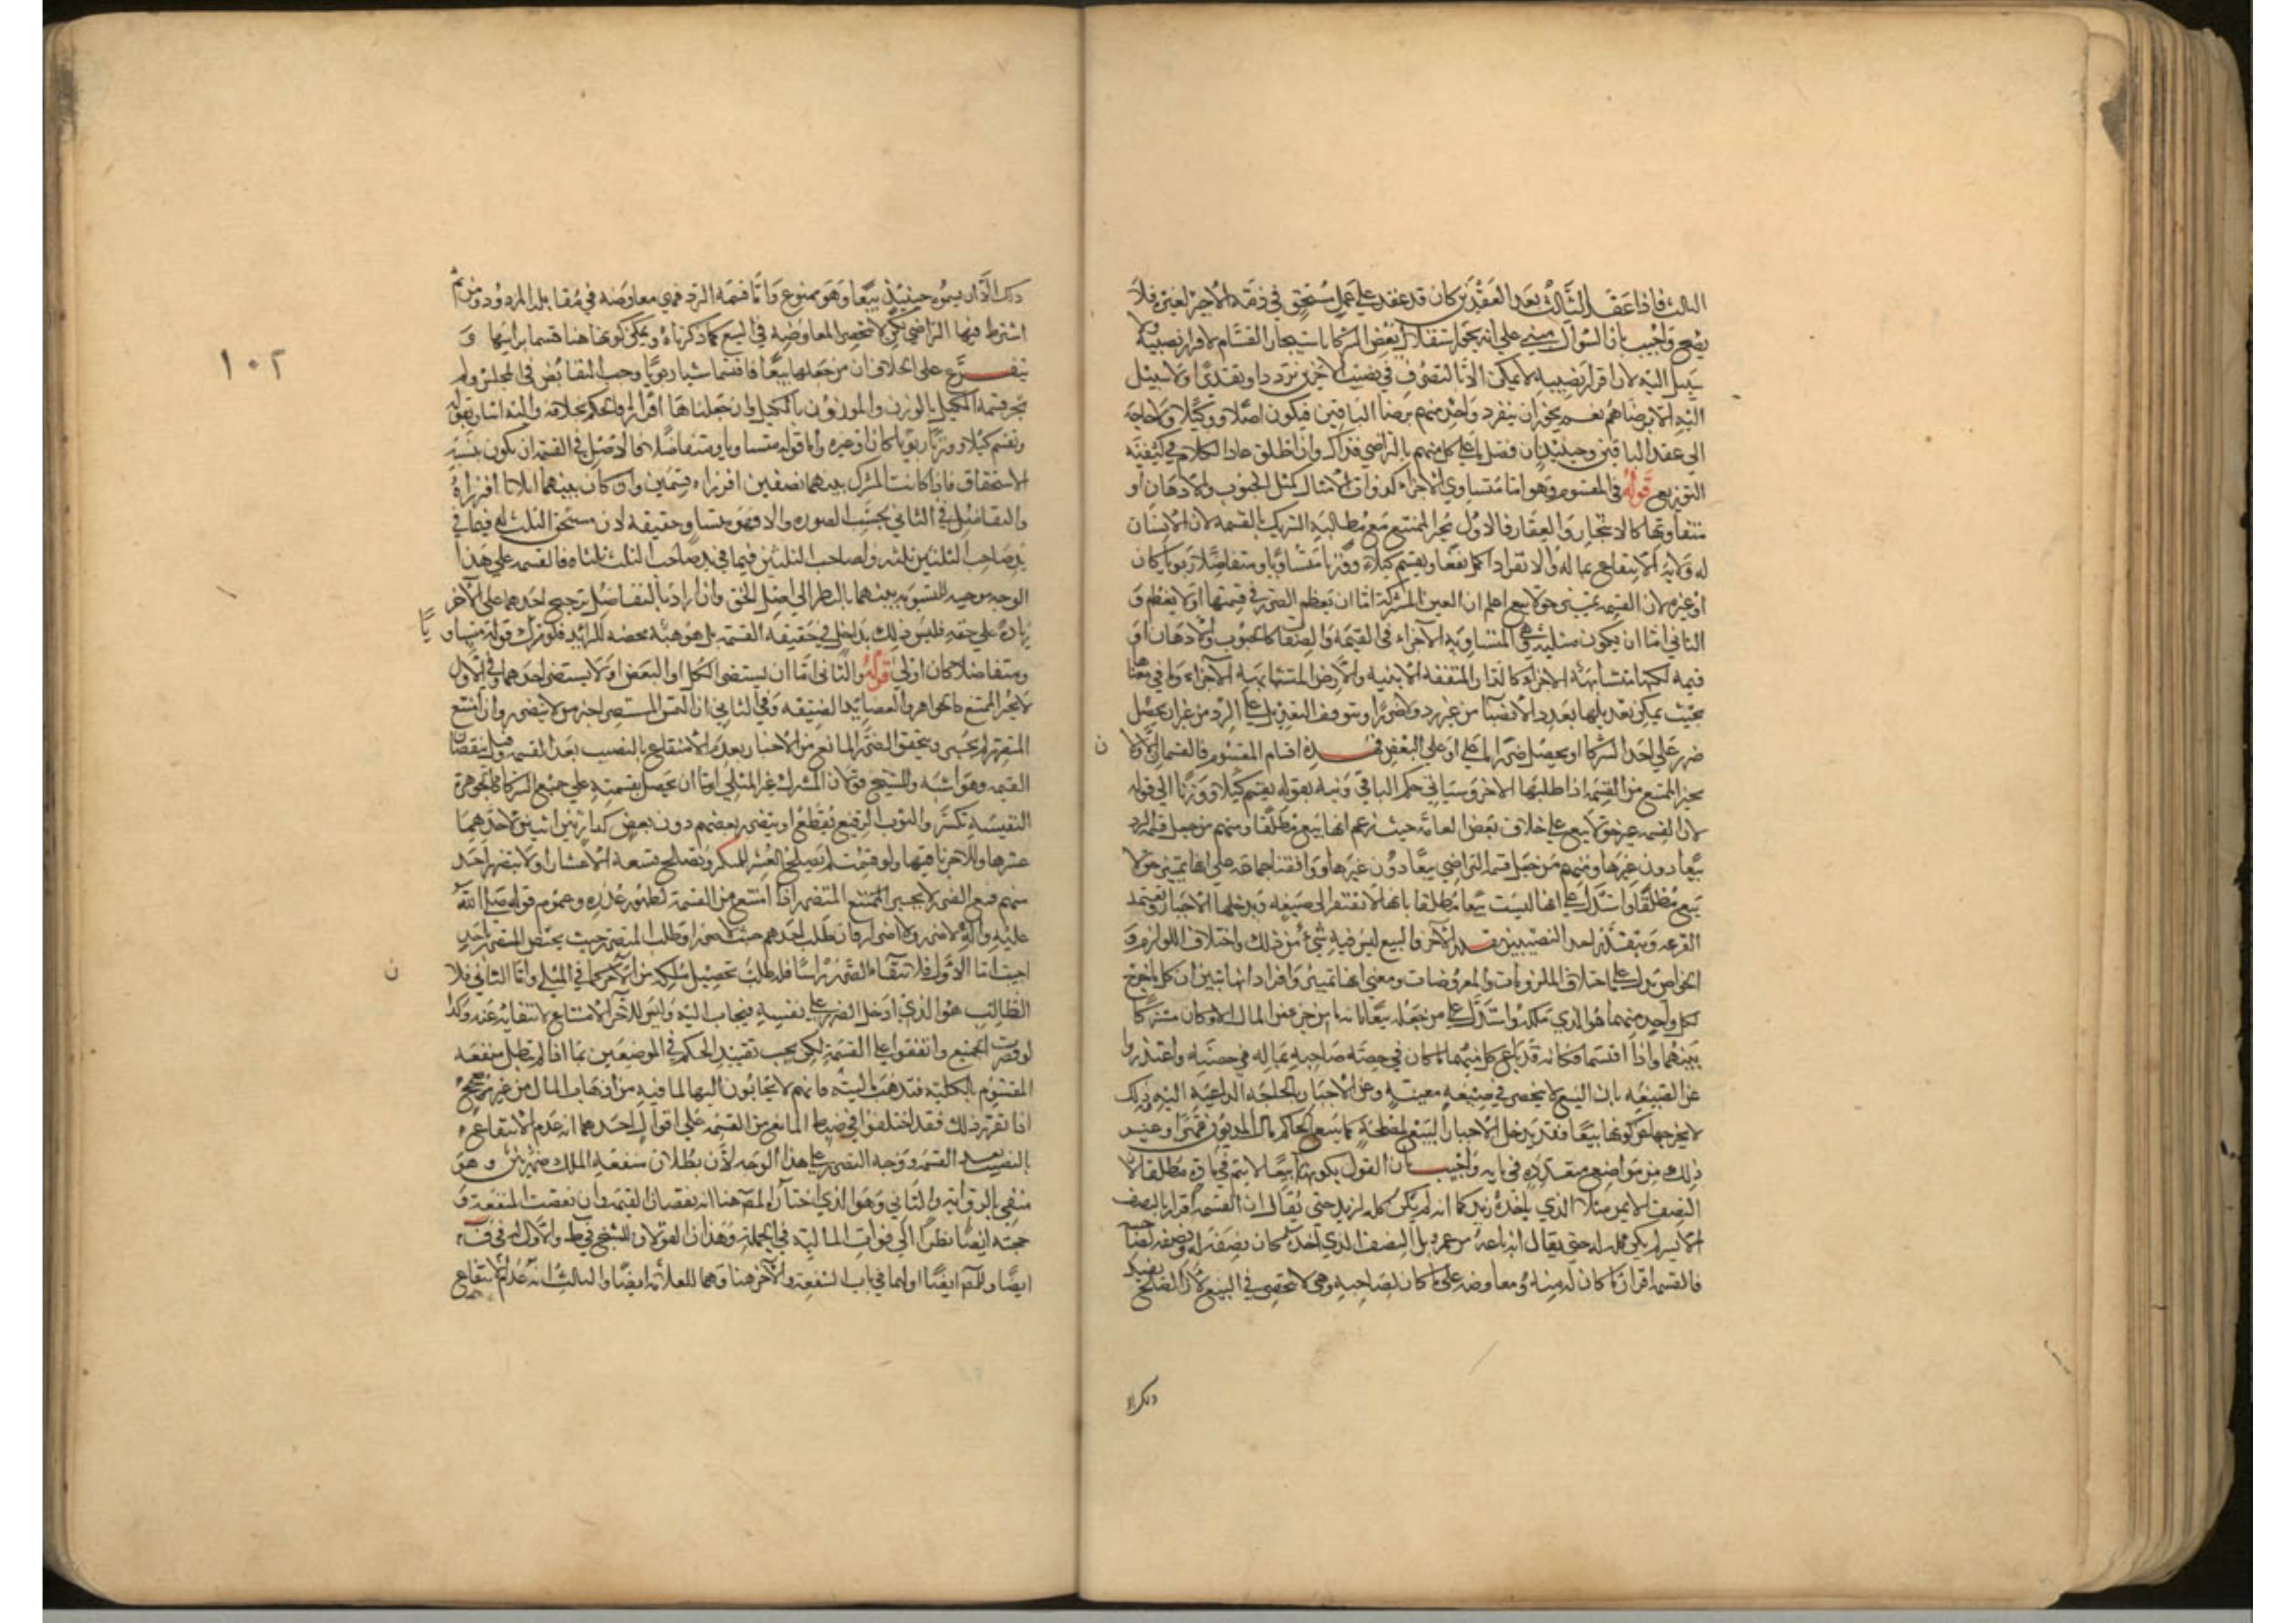 الثالث فاذا عقد الثالث بعد العقدين كان قد عقد على عمل مستحق في ذمة الاجير لغيره فلا
يصح واجيب بان السؤال مبني على انه يجوز استقلال بعض الشركا باستيجار القسام لافراز نصيبه ولا
سبيل اليه لان افراز نصيبه لا يمكن الا بالتصرف في نصيب الاخرين ترددا وتقديرا ولا سبيل
اليه الا برضاهم نعم يجوز ان ينفرد واحد منهم برضا الباقين فيكون اصلا ووكيلا ولا حاجة
الى عقد الباقين وحينئذ ان فصل ما على كل منهم بالتراضي فذاك وان اطلق عاد الكلام في كيفية
التوزيع قوله في المقسوم وهو اما متساوي الاجزاء كذوات الامثال مثل الحبوب والادهان او
متفاوتها كالاشجار والعقار فالاول يجبر الممتنع مع مطالبة الشريك بالقسمة لان الانسان
له ولاية الانتفاع بماله والانفراد اكمل نفعا ويقسم كيلا ووزنا متساويا ومتفاضلا ربويا كان
او غيره لان القسمة تمييز حق لا بيع اعلم ان العين المشتركة اما ان يعظم الضرر في قسمتها او لا يعظم و
الثاني اما ان يكون مثلية وهي المتساوية الاجزاء في القيمة والصفات كالحبوب والادهان او
قيمية لكنها متشابهة الاجزاء كالدار المتفقة الابنية والارض المتشابهة الاجزاء وما في معناها
بحيث يمكن تعديلها بعدد الانصبا من غير رد ولا ضرر او يتوقف التعديل على الرد من غير ان يحصل
ضرر على احد الشركا او يحصل ضرر اما على او على البعض فهذه اقسام المقسوم فالقسمان الاولان
يجبر الممتنع من القسمة اذا طلبها الاخر وسياتي حكم الباقي ونبه بقوله يقسم كيلا ووزنا الى قوله
لان القسمة تمييز حق لا بيع على خلاف بعض العامة حيث زعم انها بيع مطلقا ومنهم من جعل قسمة الرد
بيعا دون غيرها ومنهم من جعل قسمة التراضي بيعا دون غيرها ووافقنا جماعة على انها تمييز حق لا
بيع مطلقا واستدل على انها ليست بيعا مطلقا بانها لا تفتقر الى صيغة ويدخلها الاجبار وتعتمد
القرعة ويتقدر احد النصيبين بقدر الاخر والبيع ليس فيه شيء من ذلك واختلاف اللوازم و
الخواص يدل على اختلاف الملزومات والمعروضات ومعنى انها تمييز وافراز انها تبين ان كل ما خرج
لكل واحد منهما هو الذي ملكه واستدل على من جعله بيعا بانه ما من جزء من المال الا وكان مشتركا
بينهما واذا اقتسما فكانه قد باع كل منهما ما كان في حصة صاحبه بماله في حصته واعتذروا
عن الصيغة بان البيع لا ينحصر في صيغة معينة وعن الاجبار بالحاجة الداعية اليه وذلك
لا يخرجها عن كونها بيعا فقد يدخل الاجبار البيع لمصلحة كما يبيع الحاكم مال المديون قهرا وغير
ذلك من مواضع متعددة في بابه واجيب بان القول بكونها بيعا لا يتم في مطلقا لان
النصف الايمن مثلا الذي ياخذه زيد كما انه لم يكن كله لزيد حتى يقال ان القسمة افراز النصف
الايسر لم يكن كله له حتى يقال انه باعه من عمرو بل النصف الذي اخذه كان نصفه له ونصفه لصاحبه
فالقسمة افراز لما كان له منه ومعاوضة على ما كان لصاحبه وهي لا تنحصر في البيع لان الصلح يفيد
ذلك الا
ذلك الا ان يسموه حينئذ بيعا وهو ممنوع واما قسمة الرد فهي معاوضة في مقابلة المردود ومن ثم
اشترط فيها التراضي لكن لا تنحصر المعاوضة في البيع كما ذكرناه ويمكن كونها هنا قسما براسها و
يتفرع على الخلاف ان من جعلها بيعا فاقتسما شيا ربويا وجب التقابض في المجلس ولم
تجز قسمة المكيل بالوزن والموزون بالكيل وان جعلناها افرازا فالحكم بخلافه واليه اشار بقوله
وتقسم كيلا ووزنا ربويا كان او غيره واما قوله متساويا ومتفاضلا فالاصل في القسمة ان يكون بنسبة
الاستحقاق فاذا كانت الشركة بينهما نصفين افرزاه قسمين وان كان بينهما اثلاثا افرزاه
والتفاضل في الثاني بحسب الصورة والا فهو متساو حقيقة لان مستحق الثلث له فيما في
يد صاحب الثلثين ثلثه ولصاحب الثلثين فيما في يد صاحب الثلث ثلثاه فالقسمة على هذا
الوجه موجبة للتسوية بينهما بالنظر الى اصل الحق وان اراد بالتفاضل ترجيح احدهما على الاخر
زيادة على حقه فليس ذلك بداخل في حقيقة القسمة بل هو هبة محضة للزائد فلو ترك قوله متساويا
ومتفاضلا كان اولى قوله والثاني اما ان يستضر الكل او البعض او لا يستضر احدهما وفي الاول
لا يجبر الممتنع كالجواهر والعضايد الضيقة وفي الثاني ان التمس المستضر اجبر من لا يتضرر وان امتنع
المتضرر لم يجبر ويتحقق الضرر المانع من الاجبار بعدم الانتفاع بالنصيب بعد القسمة وقيل بنقصان
القيمة وهو اشبه وللشيخ قولان المشترك غير المثلي اما ان يحصل بقسمته على جميع الشركا كالجوهرة
النفيسة تكسر والثوب الرفيع يقطع او يتضرر بعضهم دون بعض كدار بين اثنين لاحدهما
عشرها وللاخر باقيها ولو قسمت لم يصلح العشر للسكنى ويصلح تسعة الاعشار او لا يتضرر احد
منهم فمع الضرر لا يجبر الممتنع المتضرر اذا امتنع من القسمة لظهور عذره وعموم قوله صلى الله
عليه واله لا ضرر ولا ضرار فان طلب احدهم حيث لا ضرر او طلب المتضرر حيث يختص الضرر باحد
اجيب اما الاول فلانتفاء الضرر راسا فله طلب تحصيل ملكه من الاخر كما في المثلي واما الثاني فلان
الطالب هو الذي ادخل الضرر على نفسه فيجاب اليه وليس للاخر الامتناع لانتفائه عنه وكذا
لو تضرر الجميع واتفقوا على القسمة لكن يجب تقييد الحكم في الموضعين بما اذا لم تبطل منفعة
المقسوم بالكلية فتذهب ماليته فانهم لا يجابون اليها لما فيه من اذهاب المال من غير غرض صحيح
اذا تقرر ذلك فقد اختلفوا في ضبط المانع من القسمة على اقوال احدها انه عدم الانتفاع
بالنصيب بعد القسمة ووجه التضرر على هذا الوجه لان بطلان منفعة الملك ضرر بين وهو
منفي بالرواية والثاني وهو الذي اختاره المص هنا انه نقصان القيمة وان نقصت المنفعة و
حجته ايضا نظرا الى فوات المالية في الجملة وهذان القولان للشيخ في ط والاول له في ف
ايضا وللمص ايضا اولهما في باب الشفعة والاخر هنا وهما للعلامة ايضا والثالث انه عدم الانتفاع
١٠٢